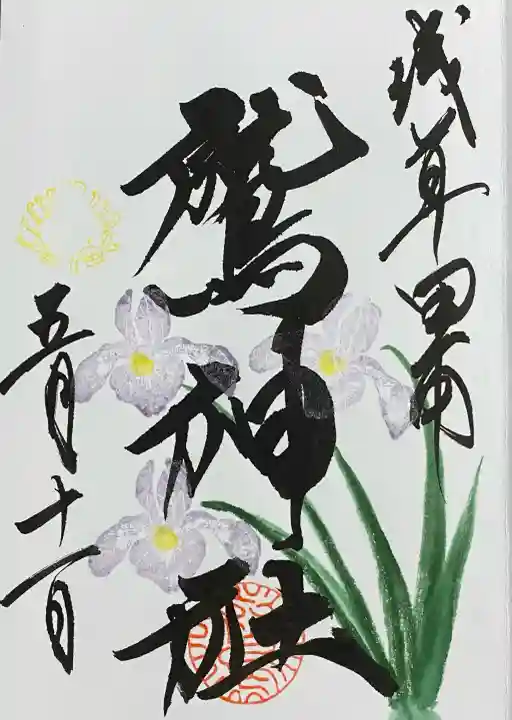 浅草田甫
鷲神社
五月十一日